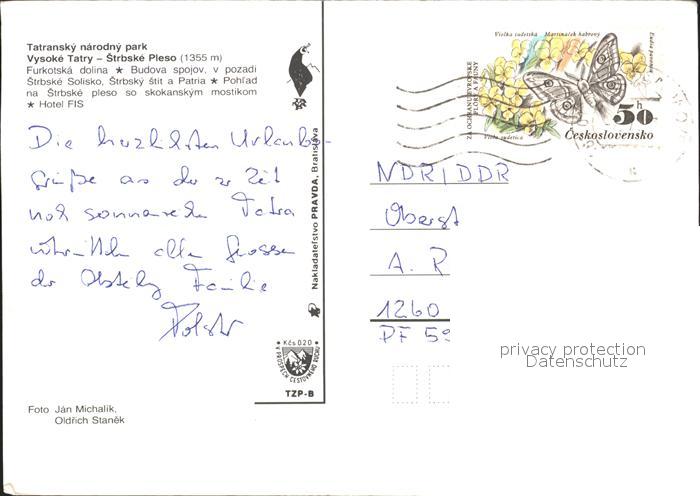 Tatranský národný park
Vysoké Tatry – Štrbské Pleso (1355 m)
Furkotská dolina ★ Budova spojov, v pozadí
Štrbské Solisko, Štrbský štít a Patria ★ Pohľad
na Štrbské pleso so skokanským mostíkom
★ Hotel FIS
Die herzlichsten Urlaubs-
grüße aus der z. Zeit
noch Tatra
allen
der Familie
Nakladateľstvo PRAVDA, Bratislava
Kčs 0,20
V PROSPECH CESTOVNÉHO RUCHU
TZP-B
Foto Ján Michalík,
Oldřich Staněk
Violka sudetská Martináček habrový
Viola sudetica
Eudia pavonia
ZA OCHRANU EVROPSKÉ
FLÓRY A FAUNY
50 h
Československo
NDR/DDR
Oberst
A. R
1260
PF 59
privacy protection
Datenschutz